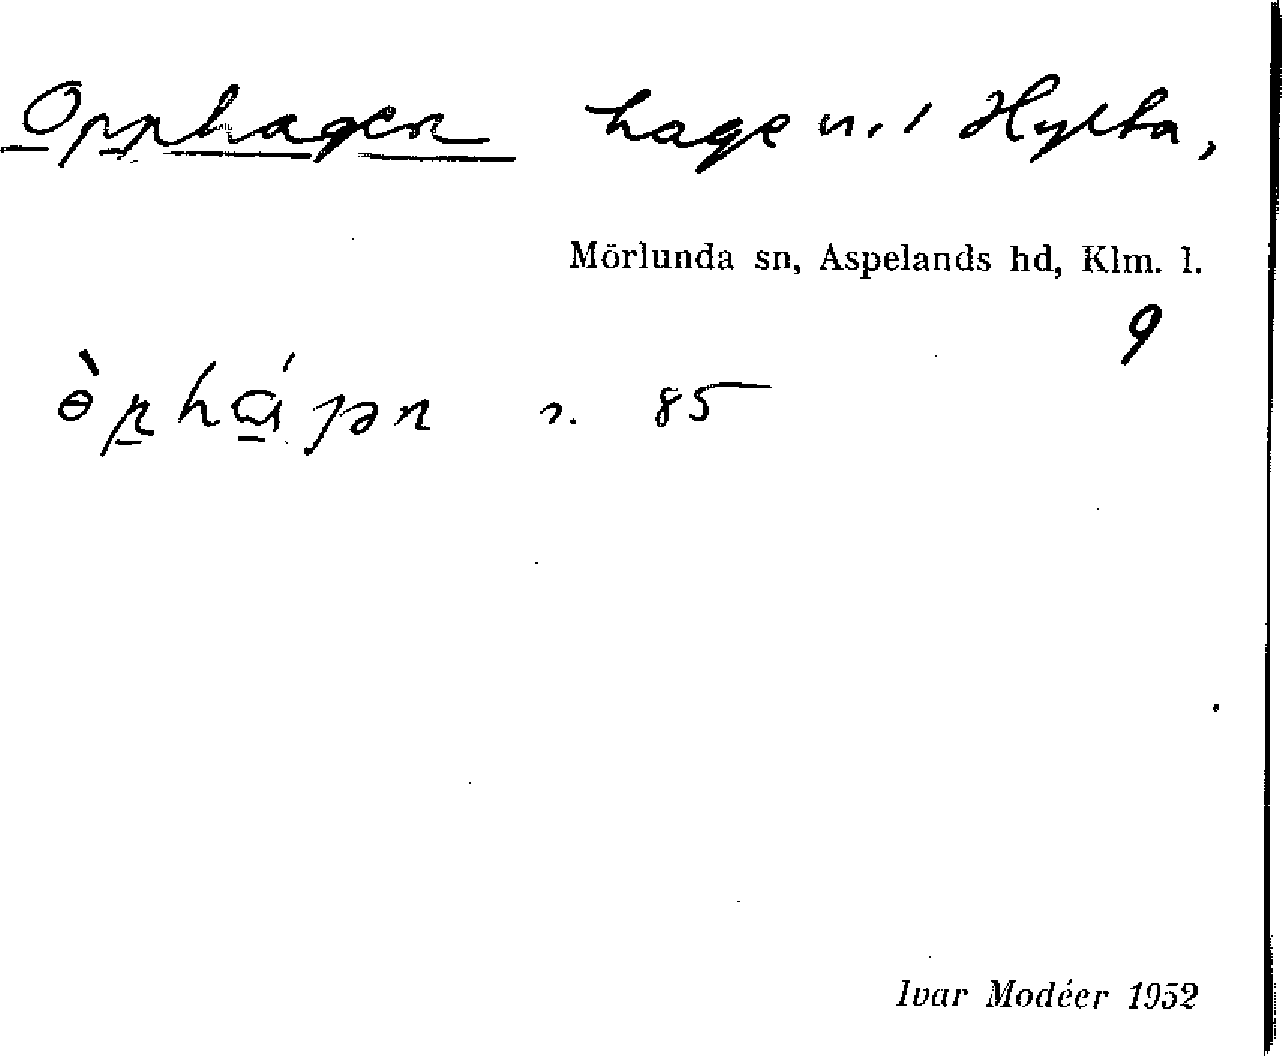 Opphagen hage u. Hylta,
Mörlunda sn, Aspelands hd, Klm. l.
9
s. 85
Ivar Modéer 1952